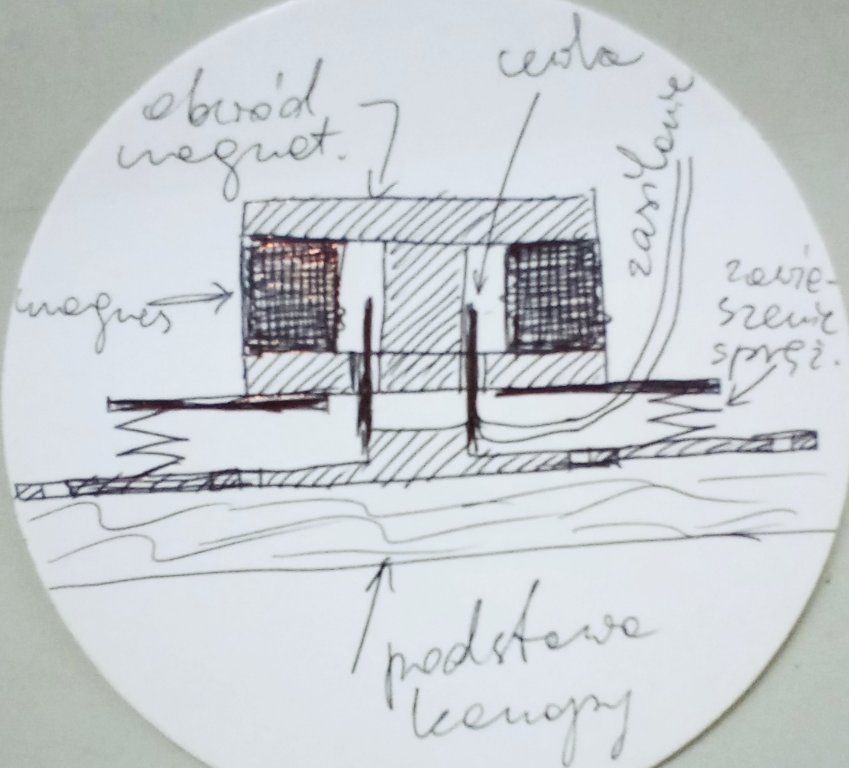 cewka
obwód
magnet.
zasilanie
magnes
zawie-
szenie
spręż.
podstawa
kanapy